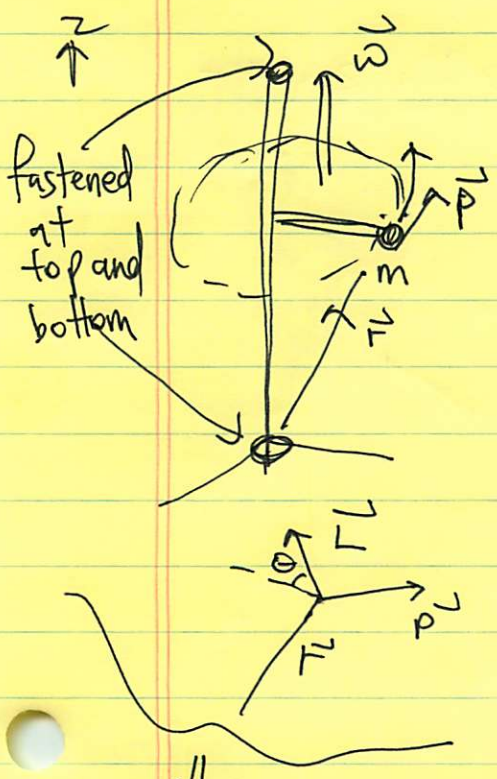 z
ω
fastened
at
top and
bottom
p
m
r
L
θ
p
r